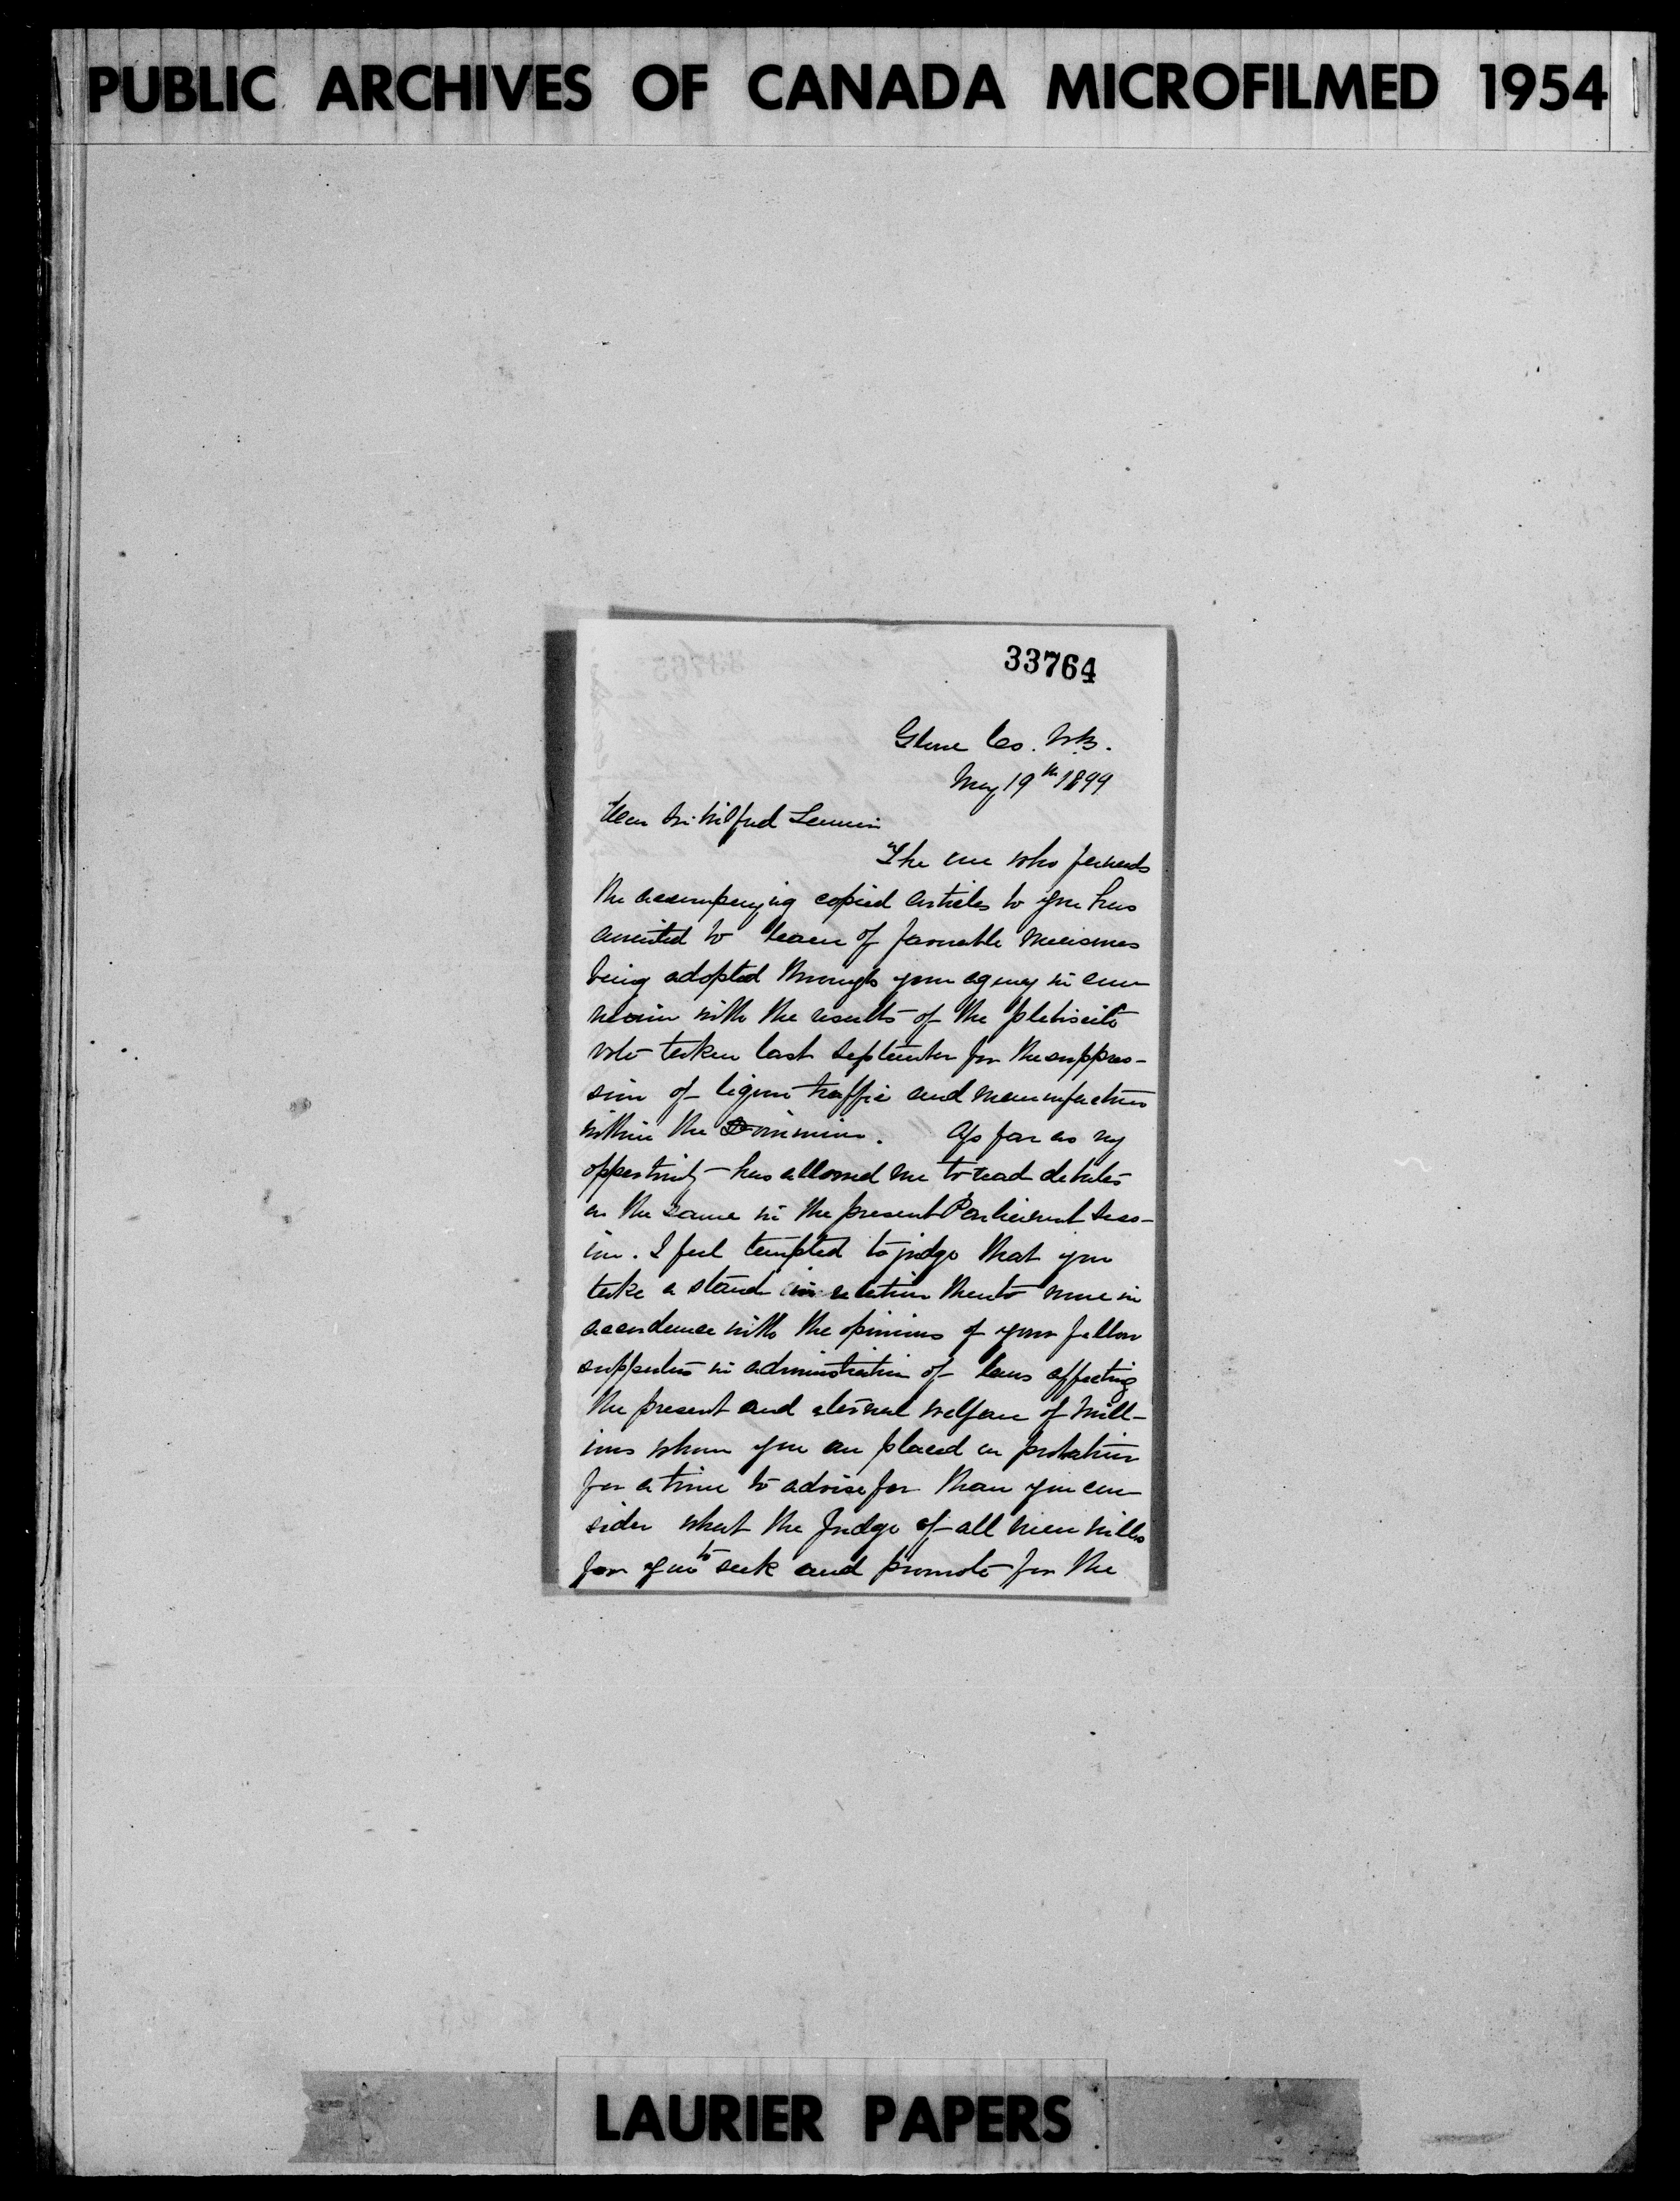 PUBLIC ARCHIVES OF CANADA MICROFILMED 1954
33764
Co. N.B.
May 19th 1899
Dear Sir Wilfrid Laurier
The one who forwards
the accompanying copied articles to you has
awaited to learn of favorable measures
being adopted through your agency in con-
nexion with the results of the plebiscite
vote taken last September for the suppres-
sion of liquor traffic and manufacture
within the Dominion. As far as my
opportunity has allowed me to read debates
on the same in the present Parliament Sess-
ion. I feel tempted to judge that you
take a stand in relation thereto more in
accordance with the opinions of your fellow
supporters in administration of laws affecting
the present and eternal welfare of mill-
ions whom you are placed on probation
for a time to advise for than you con-
sider what the Judge of all men wills
for you to seek and promote for the
LAURIER PAPERS